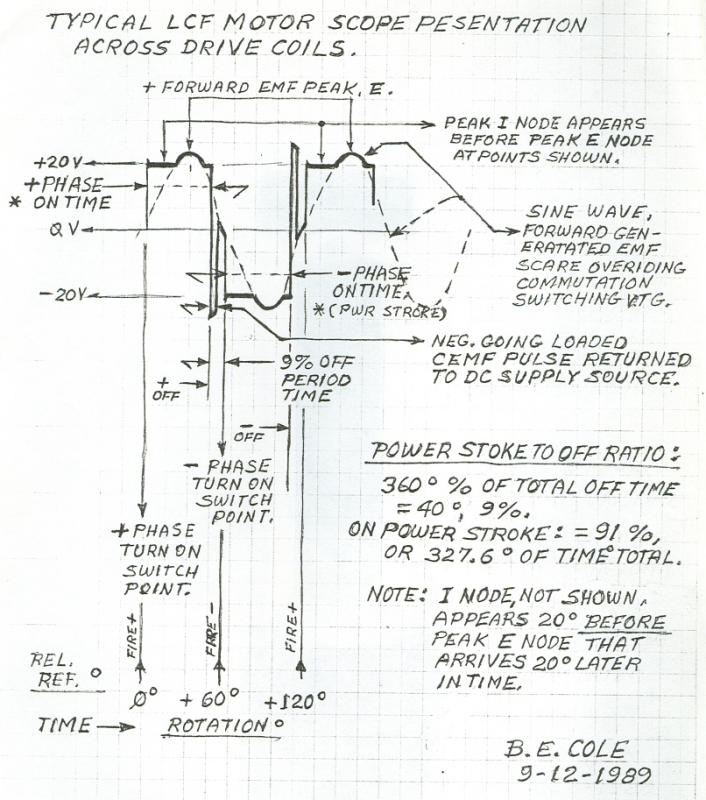 TYPICAL LCF MOTOR SCOPE PESENTATION
ACROSS DRIVE COILS.
+ FORWARD EMF PEAK, E.
PEAK I NODE APPEARS
BEFORE PEAK E NODE
AT POINTS SHOWN.
+20V
+PHASE
* ON TIME
0V
-20V
SINE WAVE,
FORWARD GEN-
ERATATED EMF
SCARE OVERIDING
COMMUTATION
SWITCHING VTG.
-PHASE
ON TIME
*(PWR STROKE)
NEG. GOING LOADED
CEMF PULSE RETURNED
TO DC SUPPLY SOURCE.
9% OFF
PERIOD
TIME
+
OFF
-
OFF
- PHASE
TURN ON
SWITCH
POINT.
+ PHASE
TURN ON
SWITCH
POINT.
POWER STOKE TO OFF RATIO:
360° % OF TOTAL OFF TIME
= 40°, 9%.
ON POWER STROKE: = 91%,
OR 327.6° OF TIME TOTAL.
NOTE: I NODE, NOT SHOWN,
APPEARS 20° BEFORE
PEAK E NODE THAT
ARRIVES 20° LATER
IN TIME.
FIRE+
FIRE-
FIRE+
REL.
REF. °
0° +60° +120°
TIME → ROTATION°
B.E. COLE
9-12-1989